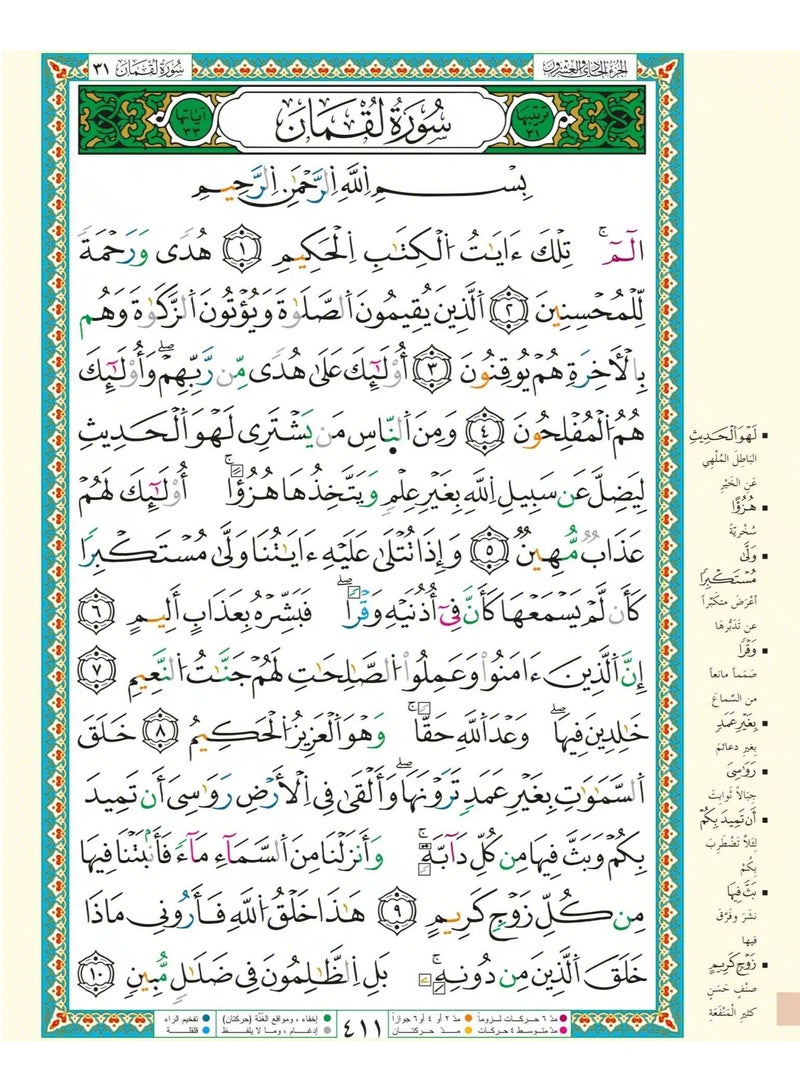 الجزء الحادي والعشرون
سُورَةُ لُقْمَان ٣١
ترتيبها ٣١
سُورَةُ لُقْمَانَ
آياتها ٣٣
بِسْمِ اِللَّهِ اِلرَّحْمَٰنِ اِلرَّحِيمِ
أَلَٓمِّٓۖ تِلْكَ ءَايَٰتُ اُلْكِتَٰبِ اِلْحَكِيمِ ١ هُدىً وَرَحْمَةً
لِّلْمُحْسِنِينَ ٢ اَلَّذِينَ يُقِيمُونَ اَلصَّلَوٰةَ وَيُؤْتُونَ اَلزَّكَوٰةَ وَهُم
بِالْأَخِرَةِ هُمْ يُوقِنُونَ ٣ أُوْلَٰٓئِكَ عَلَىٰ هُدىً مِّن رَّبِّهِمْۖ وَأُوْلَٰٓئِكَ
هُمُ اُلْمُفْلِحُونَ ٤ وَمِنَ اَلنَّاسِ مَن يَشْتَرِى لَهْوَ اَلْحَدِيثِ
لِيُضِلَّ عَن سَبِيلِ اِللَّهِ بِغَيْرِ عِلْمٍ وَيَتَّخِذُهَا هُزُؤًاۚ أُوْلَٰٓئِكَ لَهُمْ
عَذَابٌ مُّهِينٌ ٥ وَإِذَا تُتْلَىٰ عَلَيْهِ ءَايَٰتُنَا وَلَّىٰ مُسْتَكْبِرًا
كَأَن لَّمْ يَسْمَعْهَا كَأَنَّ فِىٓ أُذْنَيْهِ وَقْرًاۖ فَبَشِّرْهُ بِعَذَابٍ أَلِيمٍ ٦
إِنَّ اَلَّذِينَ ءَامَنُواْ وَعَمِلُواْ اُلصَّٰلِحَٰتِ لَهُمْ جَنَّٰتُ اُلنَّعِيمِ ٧
خَٰلِدِينَ فِيهَاۖ وَعْدَ اَللَّهِ حَقًّاۚ وَهُوَ اَلْعَزِيزُ اُلْحَكِيمُ ٨ خَلَقَ
اَلسَّمَٰوَٰتِ بِغَيْرِ عَمَدٍ تَرَوْنَهَاۖ وَأَلْقَىٰ فِى اِلْأَرْضِ رَوَٰسِىَ أَن تَمِيدَ
بِكُمْ وَبَثَّ فِيهَا مِن كُلِّ دَآبَّةٍۚ وَأَنزَلْنَا مِنَ اَلسَّمَآءِ مَآءً فَأَنۢبَتْنَا فِيهَا
مِن كُلِّ زَوْجٍ كَرِيمٍ ٩ هَٰذَا خَلْقُ اُللَّهِ فَأَرُونِى مَاذَا
خَلَقَ اَلَّذِينَ مِن دُونِهِۦۚ بَلِ اِلظَّٰلِمُونَ فِى ضَلَٰلٍ مُّبِينٍ ١٠
▪ لَهْوَ اَلْحَدِيثِ
البَاطِلَ المُلْهِي
عَنِ الخَيْرِ
▪ هُزُؤًا
سُخْرِيَّةً
▪ وَلَّىٰ
مُسْتَكْبِرًا
أعْرَضَ متكَبِّراً
عن تَدَبُّرِهَا
▪ وَقْرًا
صَمَماً مانعاً
من السَّماع
▪ بِغَيْرِ عَمَدٍ
بغيرِ دعائمَ
▪ رَوَٰسِىَ
جِبَالاً ثَوابتَ
▪ أَن تَمِيدَ بِكُمْ
لِئَلاَّ تَضْطَرِبَ
بِكُمْ
▪ بَثَّ فِيهَا
نَشَرَ وفَرَّقَ
فيها
▪ زَوْجٍ كَرِيمٍ
صِنْفٍ حَسَنٍ
كثيرِ الْمَنْفَعَةِ
مدّ ٦ حركات لزوماً ● مدّ ٢ أو ٤ أو ٦ جوازاً
مدّ متوسط ٤ حركات ● مـدّ حركتـان
٤١١
إخفاء، ومواقع الغُنَّة (حركتان) ● تفخيم الراء
إدغام، وما لا يُلفـظ ● قلقلة